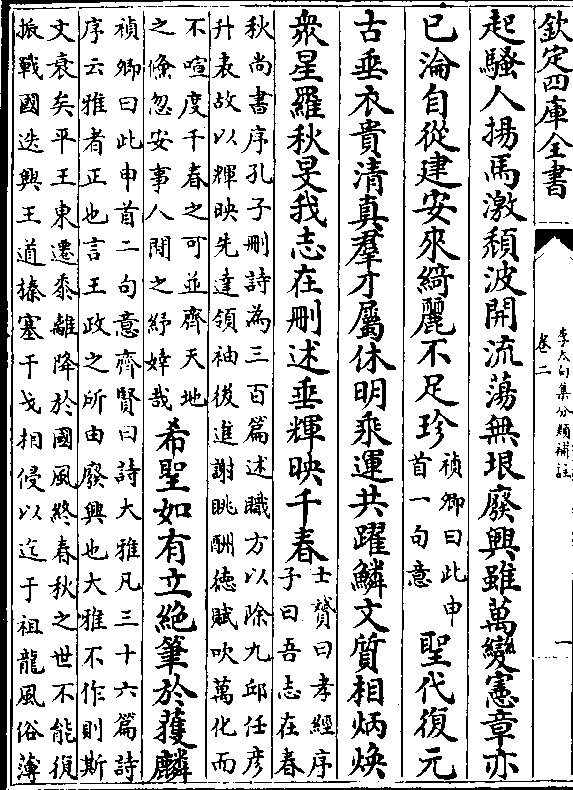 欽定四庫全書
李太白集分類補註
卷二
一
起騷人揚馬激頹波開流蕩無垠廢興雖萬變憲章亦
已淪自從建安來綺麗不足珍
禎卿曰此申
首一句意
聖代復元
古垂衣貴清真羣才屬休明乘運共躍鱗文質相炳煥
衆星羅秋旻我志在刪述垂輝映千春
士贇曰孝經序
子曰吾志在春
秋尚書序孔子刪詩為三百篇述職方以除九邱任彦
升表故以輝映先達領袖後進謝眺酬德賦吹萬化而
不喧度千春之可並齊天地
之倏忽安事人間之紓婞哉
希聖如有立絶筆於獲麟
禎卿曰此申首二句意齊賢曰詩大雅凡三十六篇詩
序云雅者正也言王政之所由廢興也大雅不作則斯
文衰矣平王東遷黍離降於國風終春秋之世不能復
振戰國迭興王道榛塞干戈相侵以迄于祖龍風俗薄